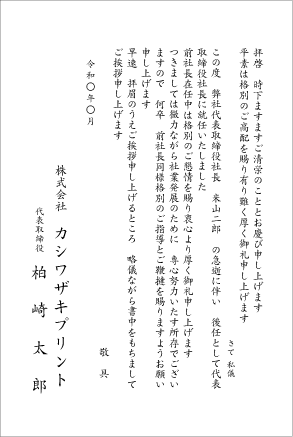 拝啓　時下ますますご清栄のこととお慶び申し上げます
平素は格別のご高配を賜り有り難く厚く御礼申し上げます
さて 私儀
この度　弊社代表取締役社長　米山二郎　の急逝に伴い　後任として代表
取締役社長に就任いたしました
前社長在任中は格別のご懇情を賜り衷心より厚く御礼申し上げます
つきましては微力ながら社業発展のために　専心努力いたす所存でござい
ますので　何卒　前社長同様格別のご指導とご鞭撻を賜りますようお願い
申し上げます
早速　拝眉のうえご挨拶申し上げるところ　略儀ながら書中をもちまして
ご挨拶申し上げます
敬具
令和〇年〇月
株式会社　カシワザキプリント
代表取締役　柏崎太郎